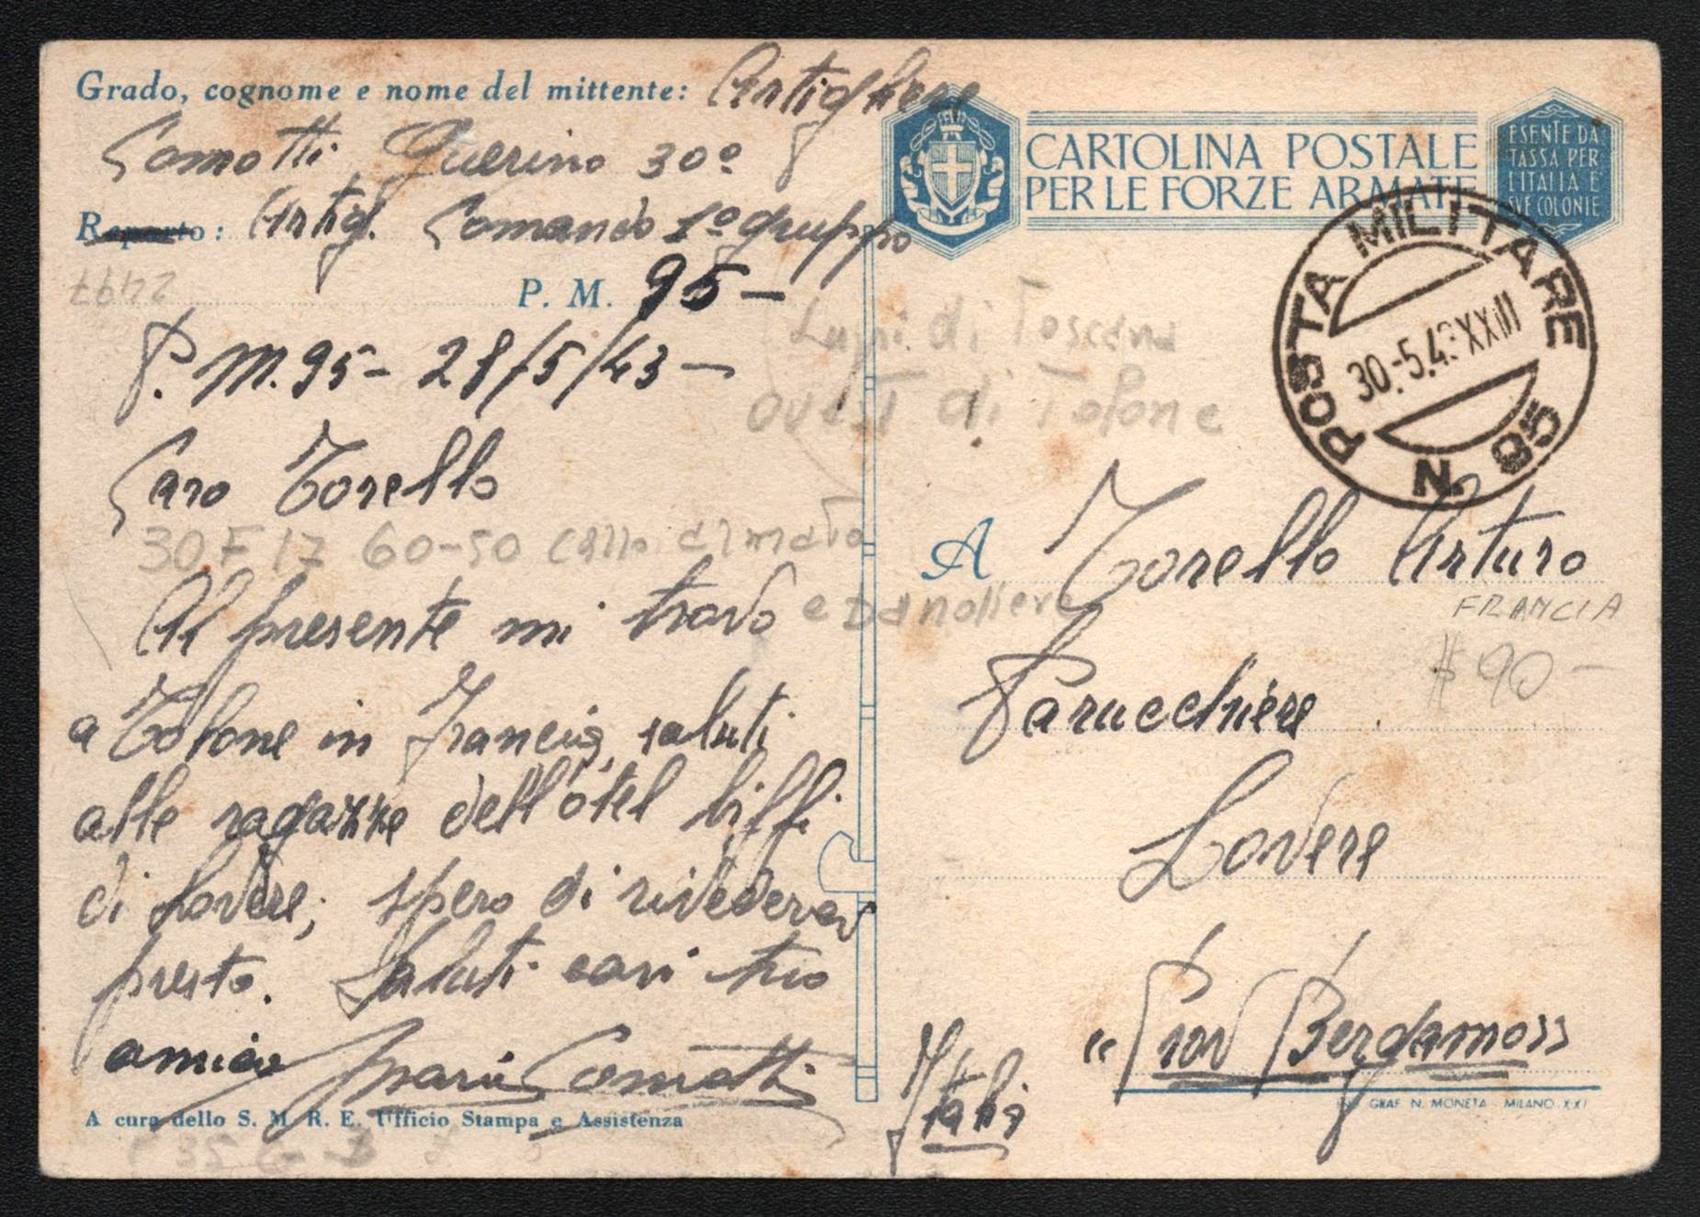 Grado, cognome e nome del mittente: Artigliere
Comotti Guerino 30º
Reparto: Artigl. Comando 1º gruppo
P. M. 95 -
P. M. 95 - 28/5/43 -
Caro Torello
30 F 17 60-50
Al presente mi trovo
a Tolone in Francia, saluti
alle ragazze dell'otel biffi
di Lovere; spero di rivedervi
presto. Saluti cari tuo
amico Comotti
A cura dello S. M. R. E. Ufficio Stampa e Assistenza
CARTOLINA POSTALE
PER LE FORZE ARMATE
ESENTE DA
TASSA PER
L'ITALIA E
SVE COLONIE
POSTA MILITARE
30.-5.43 XXIII
N. 95
Lupi di Toscana
ovest di Tolone
A Torello Arturo
FRANCIA
Parucchiere
$ 90 -
Lovere
"Prov Bergamo"
Italia
GRAF. N. MONETA - MILANO - XXI